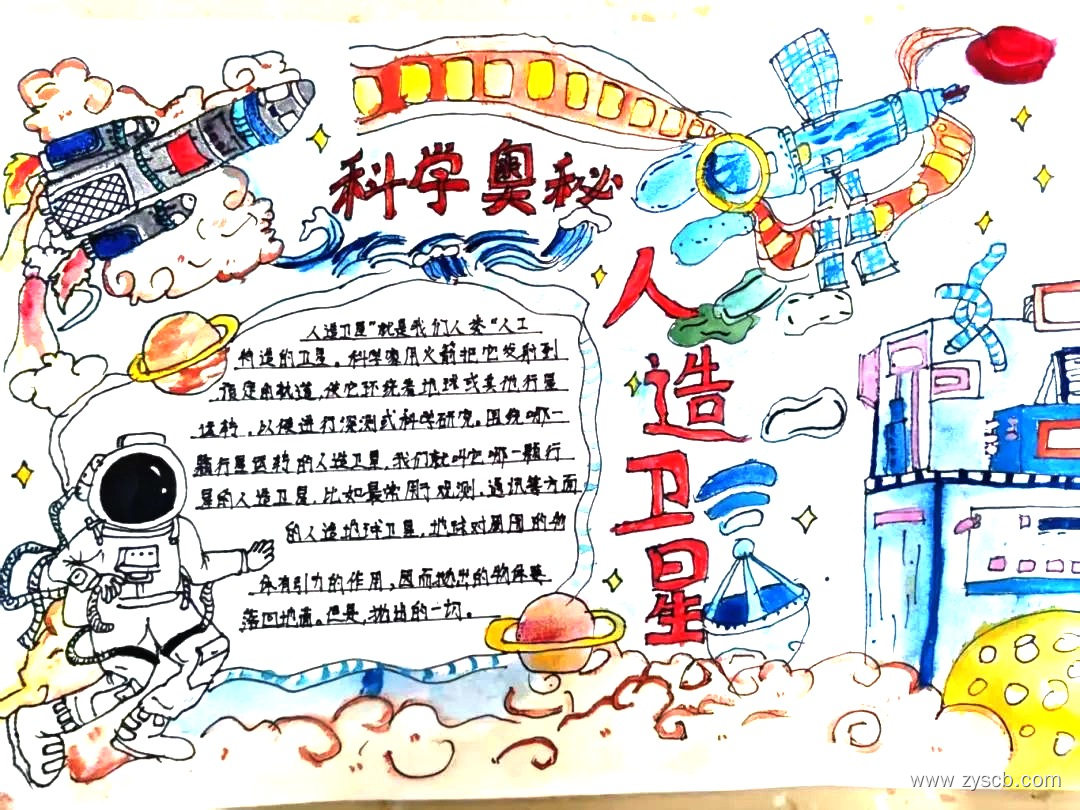 科学奥秘
人造卫星
人造卫星"就是我们人类"人工
构造的卫星。科学家用火箭把它发射到
预定的轨道,使它环绕着地球或其他行星
运转,以便进行深测或科学研究。围绕哪一
颗行星运转的人造卫星,我们就叫它哪一颗行
星的人造卫星,比如最常用于观测、通讯等方面
的人造地球卫星,地球对周围的物
体有引力的作用,因而抛出的物体要
落回地面。但是,抛出的一切。
www.zyscb.com